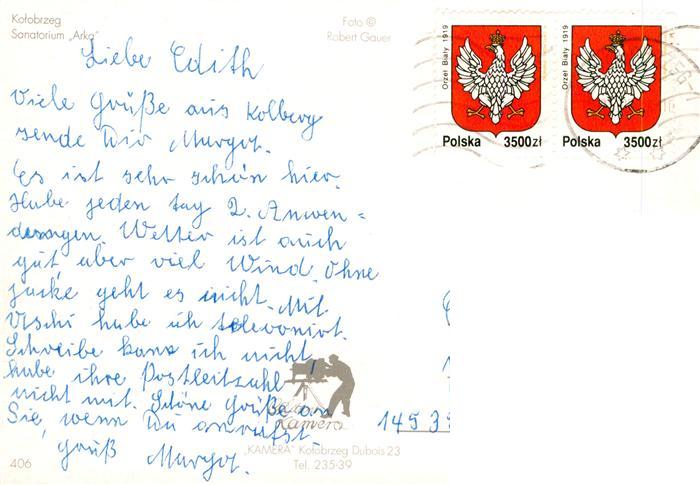 Kołobrzeg
Sanatorium „Arka"
Foto ©
Robert Gauer
Orzeł Biały 1919
Polska 3500zł
Orzeł Biały 1919
Polska 3500zł
Liebe Edith
Viele Grüße aus Kolberg
sende Dir Margot.
Es ist sehr schön hier.
Habe jeden tag 2. Anwen=
dungen. Wetter ist auch
gut, aber viel Wind. Ohne
jacke geht es nicht. Mit
Uschi habe ich televonirt.
Schreibe kann ich nicht,
habe ihre Postleitzahl
nicht mit. Schöne Grüße an
Sie, wenn Du anrufst.
Gruß Margot.
1453
Kamera
„KAMERA" Kołobrzeg Dubois 23
Tel. 235-39
406